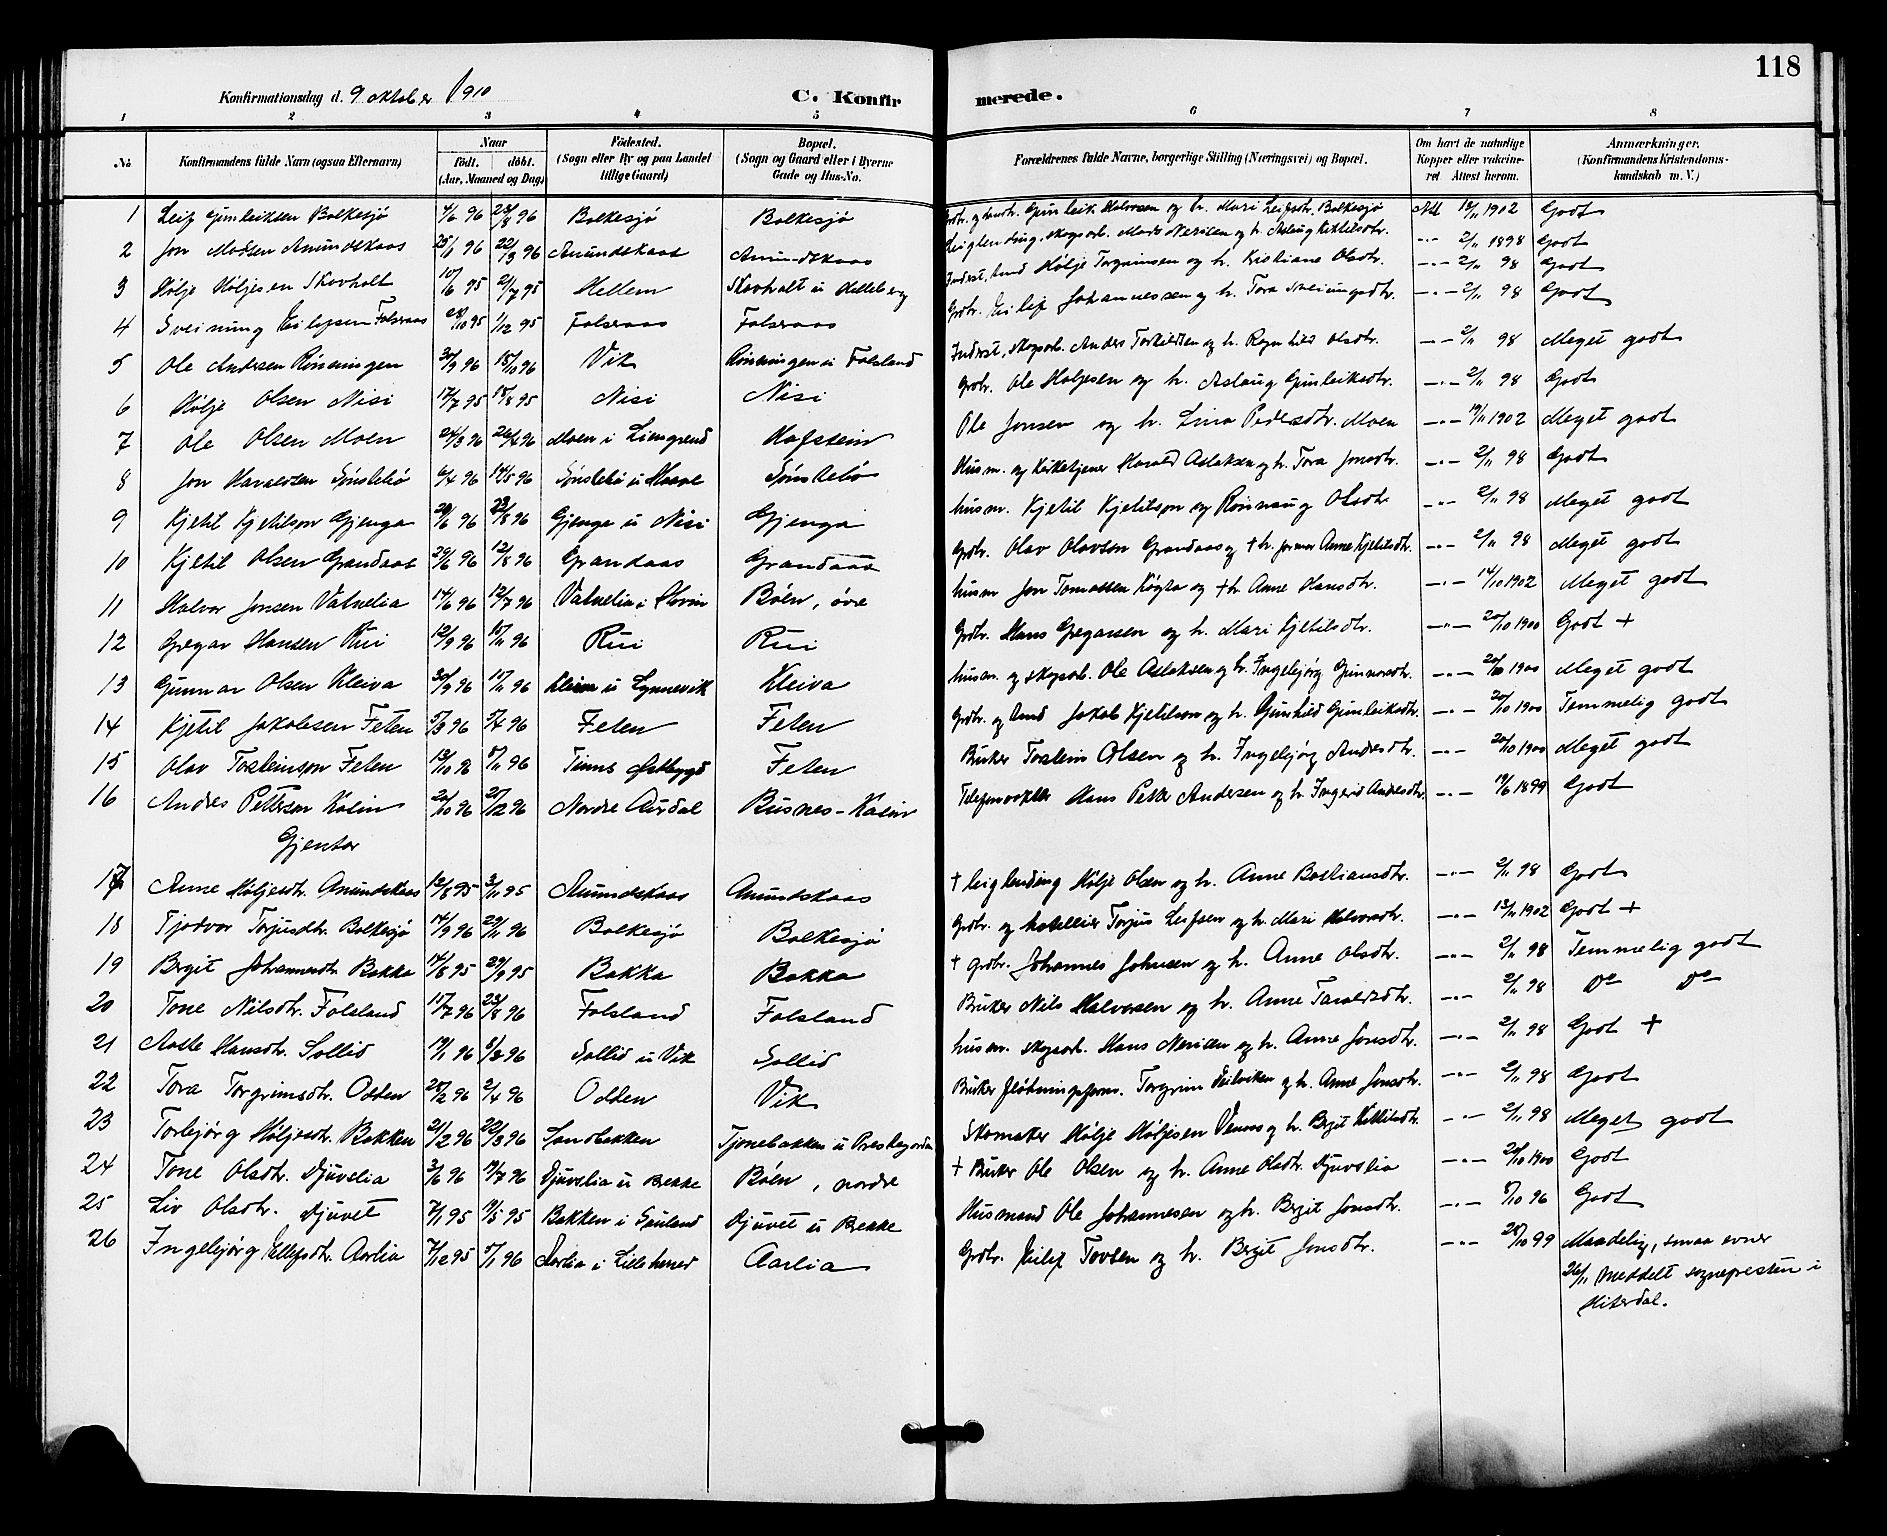 118
Konfirmationsdag d. 9 oktober 1910 C. Konfirmerede.
1 2 3 4 5 6 7 8
No Konfirmandens fulde Navn (ogsaa Efternavn) Naar födt. döbt. (Aar, Maaned og Dag) Födested. (Sogn eller By og paa Landet tillige Gaard) Bopæl. (Sogn og Gaard eller i Byerne Gade og Hus-No. Forældrenes fulde Navne, borgerlige Stilling (Næringsvei) og Bopæl. Om havt de naturlige Kopper eller vaccineret Attest herom. Anmærkninger. (Konfirmandens Kristendomskundskab m. V.)
1 Leif Gunleiksen Bolkesjø 4/6 96 23/8 96 Bolkesjø Bolkesjø Gunleik Halvorsen og h. Mari Leifsdtr. Bolkesjø Att 13/11 1902 Godt
2 Jon Madsen Anundskaas 25/1 96 22/3 96 Anundskaas Anundskaas Leiglending, skogsarb. Mads Nerisen og h. Aslaug Kittilsdtr. -"- 2/11 1898 Godt
3 Hølje Høljesen Skovholt 10/6 95 21/7 95 Hellem Skovholt u Helleberg Inderst, Smed Hølje Torgrimsen og h. Kristiane Olsdtr. -"- 2/11 98 Godt
4 Sveinung Eilefsen Folseraas 28/10 95 1/12 95 Folseraas Folseraas Grdbr. Eilef Johannessen og h. Tora Sveinungsdtr. -"- 2/11 98 Godt
5 Ole Andersen Rønningen 30/9 96 18/10 96 Vik Rønningen u Folsland Inderst, skogsarb. Anders Torkildsen og h. Ragnhild Olsdtr. -"- 2/11 98 Meget godt
6 Hølje Olsen Nisi 17/7 95 18/8 95 Nisi Nisi Grdbr. Ole Høljesen og h. Aslaug Gunleiksdtr. -"- 2/11 98 Godt
7 Ole Olsen Moen 24/3 96 26/4 96 Moen i Liengrend Hafstein Ole Jonsen og h. Lina Pedersdtr. Moen -"- 19/11 1902 Meget godt
8 Jon Haraldsen Sønstebø 6/4 96 14/5 96 Sønstebø u Hovde Sønstebø Husm. og Kirketjener Harald Aslaksen og h. Tora Jonsdtr. -"- 2/11 98 Godt
9 Kjetil Kjetilson Gjenga 29/6 96 23/8 96 Gjenga u Nisi Gjenga husm. Kjetil Kjetilson og Rønnaug Olsdtr. -"- 2/11 98 Meget godt
10 Kjetil Olsen Grandaas 29/6 96 12/8 96 Grandaas Grandaas Grdbr. Olav Olavson Grandaas og + h. Anne Kjetilsdtr. -"- 2/11 98 Meget godt
11 Halvor Jonsen Vatnelia 14/6 96 12/7 96 Vatnelia i Hovin Bøen, øvre husm Jon Tomassen Køgta og + h. Anne Hansdtr. -"- 14/10 1902 Meget godt
12 Gregar Hansen Rui 12/9 96 15/11 96 Rui Rui Grdbr. Hans Gregarsen og h. Mari Kjetilsdtr. -"- 20/10 1900 Godt +
13 Gunnar Olsen Kleiva 30/9 96 15/11 96 Kleiva u Lynnevik Kleiva husm. og skogsarb. Ole Aslaksen og h. Ingebjørg Gunnarsdtr. -"- 20/10 1900 Meget godt
14 Kjetil Jakobsen Feten 5/3 96 5/4 96 Feten Feten Grdbr. og Smed Jakob Kjetilson og h. Gunhild Gunleiksdtr. -"- 20/10 1900 Temmelig godt
15 Olav Torsteinson Feten 13/10 96 8/11 96 Tinns Østbygd Feten Bruker Torstein Olsen og h. Ingebjørg Andersdtr. -"- 20/10 1900 Meget godt
16 Andres Pettersen Kasin 20/10 96 27/12 96 Nordre Aurdal Busnes-Kasin Hans Petter Andersen og h. Ingerid Andersdtr. -"- 19/6 1899 Godt
Gjentor
17 Anne Høljesdtr. Anundskaas 13/8 95 3/11 95 Anundskaas Anundskaas + leiglending Hølje Olsen og h. Anne Bastiansdtr. -"- 2/11 98 Godt
18 Tjodvor Torjusdtr. Bolkesjø 14/9 96 29/11 96 Bolkesjø Bolkesjø Grdbr. og hotellier Torjus Leifsen og h. Mari Halvorsdtr. -"- 13/11 1902 Godt +
19 Bergit Johannesdtr. Bakka 14/8 95 29/9 95 Bakka Bakka + Grdbr. Johannes Johnsen og h. Anne Olsdtr. -"- 2/11 98 Temmelig godt
20 Tone Nilsdtr. Folsland 17/7 96 23/8 96 Folsland Folsland Bruker Nils Halvorsen og h. Anne Taraldsdtr. -"- 2/11 98 Do Do
21 Aaste Hansdtr. Sollid 19/1 96 8/3 96 Sollid u Vik Sollid husm. skogsarb. Hans Nerisen og h. Anne Jonsdtr. -"- 2/11 98 Godt +
22 Tora Torgrimsdtr. Odden 28/2 96 2/4 96 Odden Vik Bruker Fløtningsform. Torgrim og h. Anne Jonsdtr. -"- 2/11 98 Godt
23 Torbjørg Høljesdtr. Bakken 21/2 96 22/3 96 Sandbakken Tjønebakken u Prestegorden Skomaker Hølje Høljesen og h. Bergit Kittilsdtr. -"- 2/11 98 Meget godt
24 Tone Olsdtr. Djuvelia 3/6 96 19/7 96 Djuvelia u Bekke Bøen, nordre + Bruker Ole Olsen og h. Anne Olsdtr. Djuvelia -"- 20/10 1900 Godt
25 Liv Olsdtr. Djuvet 7/1 95 19/5 95 Bakken i Sauland Djuvet u Bekke Husmand Ole Johannesen og h. Bergit Jonsdtr. -"- 8/10 96 Godt
26 Ingebjørg Eilefsdtr. Aarlia 7/12 95 5/1 96 Aarlia i Lilleherred Aarlia Grdbr. Eilef Tovsen og h. Bergit Jonsdtr. -"- 28/10 99 Maadelig, smaa evner
26/11 meddelt sognepresten i
Hiterdal.